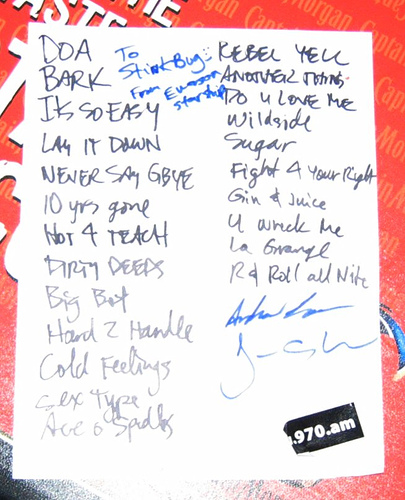 DOA
BARK
It's SO EASY
LAY IT DOWN
NEVER SAY GBYE
10 yrs gone
Hot 4 TEACH
DIRTY DEEDS
Big Bot
Hard 2 Handle
Cold Feelings
Sex Type
Ace o Spades
To
StinkBug:
From
starship
REBEL YELL
ANOTHER THING
Do U LOVE ME
Wildside
Sugar
Fight 4 Your Right
Gin & Juice
U Wreck Me
La Grange
R & Roll all Nite
.970.am
Morgan
Captain